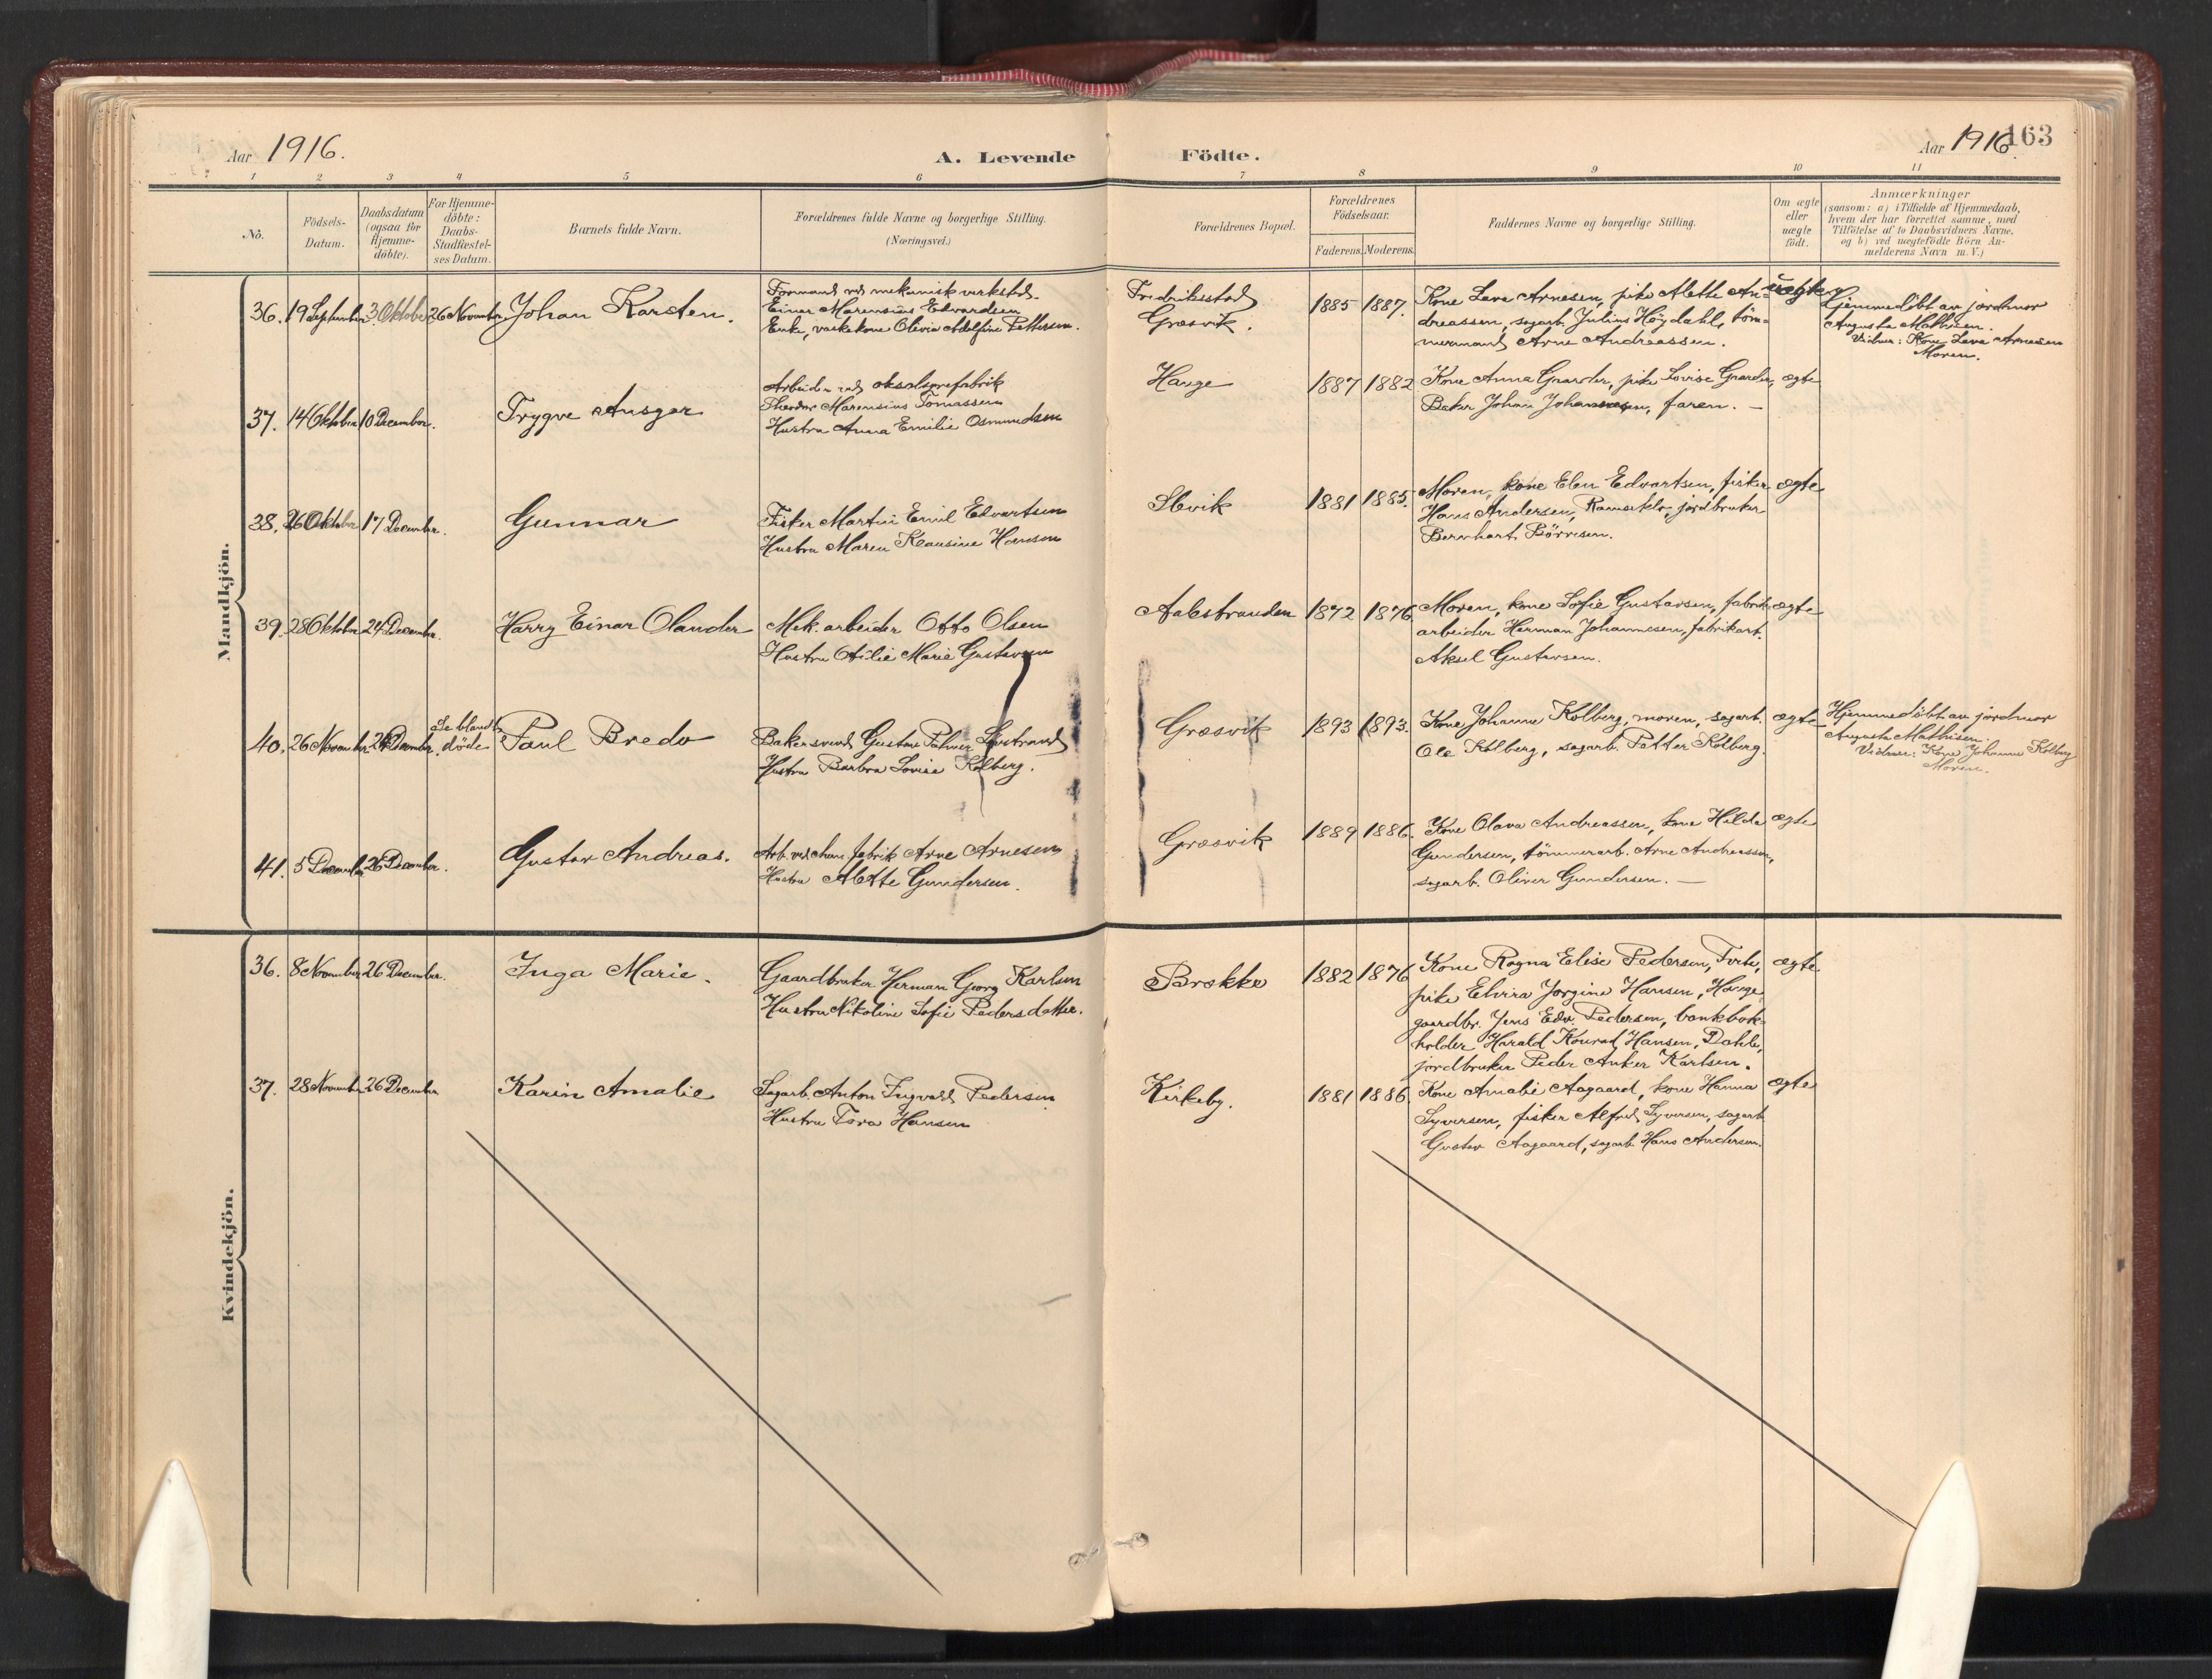 Aar 1916.
A. Levende
Födte.
Aar 1916.
163
1 2 3 4 5 6 7 8 9 10 11
No.
Födsels-
Datum.
Daabsdatum
(ogsaa for
Hjemme-
döbte).
For Hjemme-
döbte:
Daabs-
Stadfæstel-
ses Datum.
Barnets fulde Navn.
Forældrenes fulde Navne og borgerlige Stilling.
(Næringsvei.)
Forældrenes Bopæl.
Forældrenes
Födselsaar.
Faderens.
Moderens.
Faddernes Navne og borgerlige Stilling.
Om ægte
eller
uægte
födt.
Anmærkninger
(saasom: a) i Tilfælde af Hjemmedaab,
hvem der har forrettet samme, med
Tilföielse af to Daabsvidners Navne,
og b) ved uægtefödte Börn An-
melderens Navn m. V.)
Mandkjön.
36. 19 September 3 Oktober 26 November Johan Karsten.
Formand ved mekanisk verksted.
Einar Marensius Edvardsen
Enke, vaskekone Olivia Adolfine Pettersen.
Fredriksstad
Græsvik.
1885 1887.
Kone Lava Arnesen, pike Alette An-
dreassen, sagarb. Julius Høydahl, tøm-
mermand Arne Andreassen.
uægte
Hjemmedöbt av jordmor
Augusta Mathisen.
Vidner: Kone Lava Arnesen
Moren.
37. 14 Oktober 10 December. Trygve Ansgar
Arbeider ved
Marensius Tomassen
Hustru Anna Emilie Osmundsen
Hauge
1887 1882
Kone Anna Gaarder, pike Lovise Gaarder,
Baker Johan Johannesen, faren. —
ægte
38. 26 Oktober 17 December. Gunnar
Fisker Martin Emil Edvartsen
Hustru Maren Klausine Hansen
Slevik
1881 1885.
Moren, kone Elen Edvartsen, fisker
Hans Andersen, Ramseklo, jordbruker
Bernhart Børresen.
ægte
39. 28 Oktober 24 December. Harry Einar Olander
Mek. arbeider Otto Olsen
Hustru Otilie Marie Gustavsen
Aalestranden
1872 1876.
Moren, kone Sofie Gustavsen, fabrik-
arbeider Herman Johannesen, fabrikarb.
Aksel Gustavsen.
ægte
40. 26 November December. Se blandt
døde
Paul Bredo
Bakersvend Gustav Palmer Løvstrand
Hustru Barbra Lovise Kolberg.
Græsvik
1893 1893.
Kone Johanne Kolberg, moren, sagarb.
Ole Kolberg, sagarb. Petter Kolberg.
ægte
Hjemmedöbt av jordmor
Augusta Mathisen.
Vidner: Kone Johanne Kolberg
Moren.
41. 5 December 26 December. Gustav Andreas.
Arb. ved chem. fabrik Arne Arnesen
Hustru Alette Gundersen.
Græsvik
1889 1886.
Kone Olava Andreassen, kone Hilda
Gundersen, tømmerarb. Arne Andreassen,
sagarb. Oliver Gundersen. —
ægte
Kvindekjön.
36. 8 November 26 December. Inga Marie.
Gaardbruker Herman Georg Karlsen
Hustru Nikoline Sofie Pedersdatter.
Brekke
1882 1876
Kone Ragna Elise Pedersen,
pike Elvira Jorgine Hansen, Hauge,
gaardbr. Jens Edv. Pedersen, bankbok-
holder Harald Konrad Hansen, Dahle,
jordbruker Peder Anker Karlsen.
ægte.
37. 28 November 26 December Karin Amalie
Sagarb. Anton Ingvald Pedersen
Hustru Tora Hansen
Kirkeby.
1881 1886.
Kone Amalie Aagaard, kone Hanna
Syversen, fisker Alfred Syversen, sagarb.
Gustav Aagaard, sagarb. Hans Andersen.
ægte